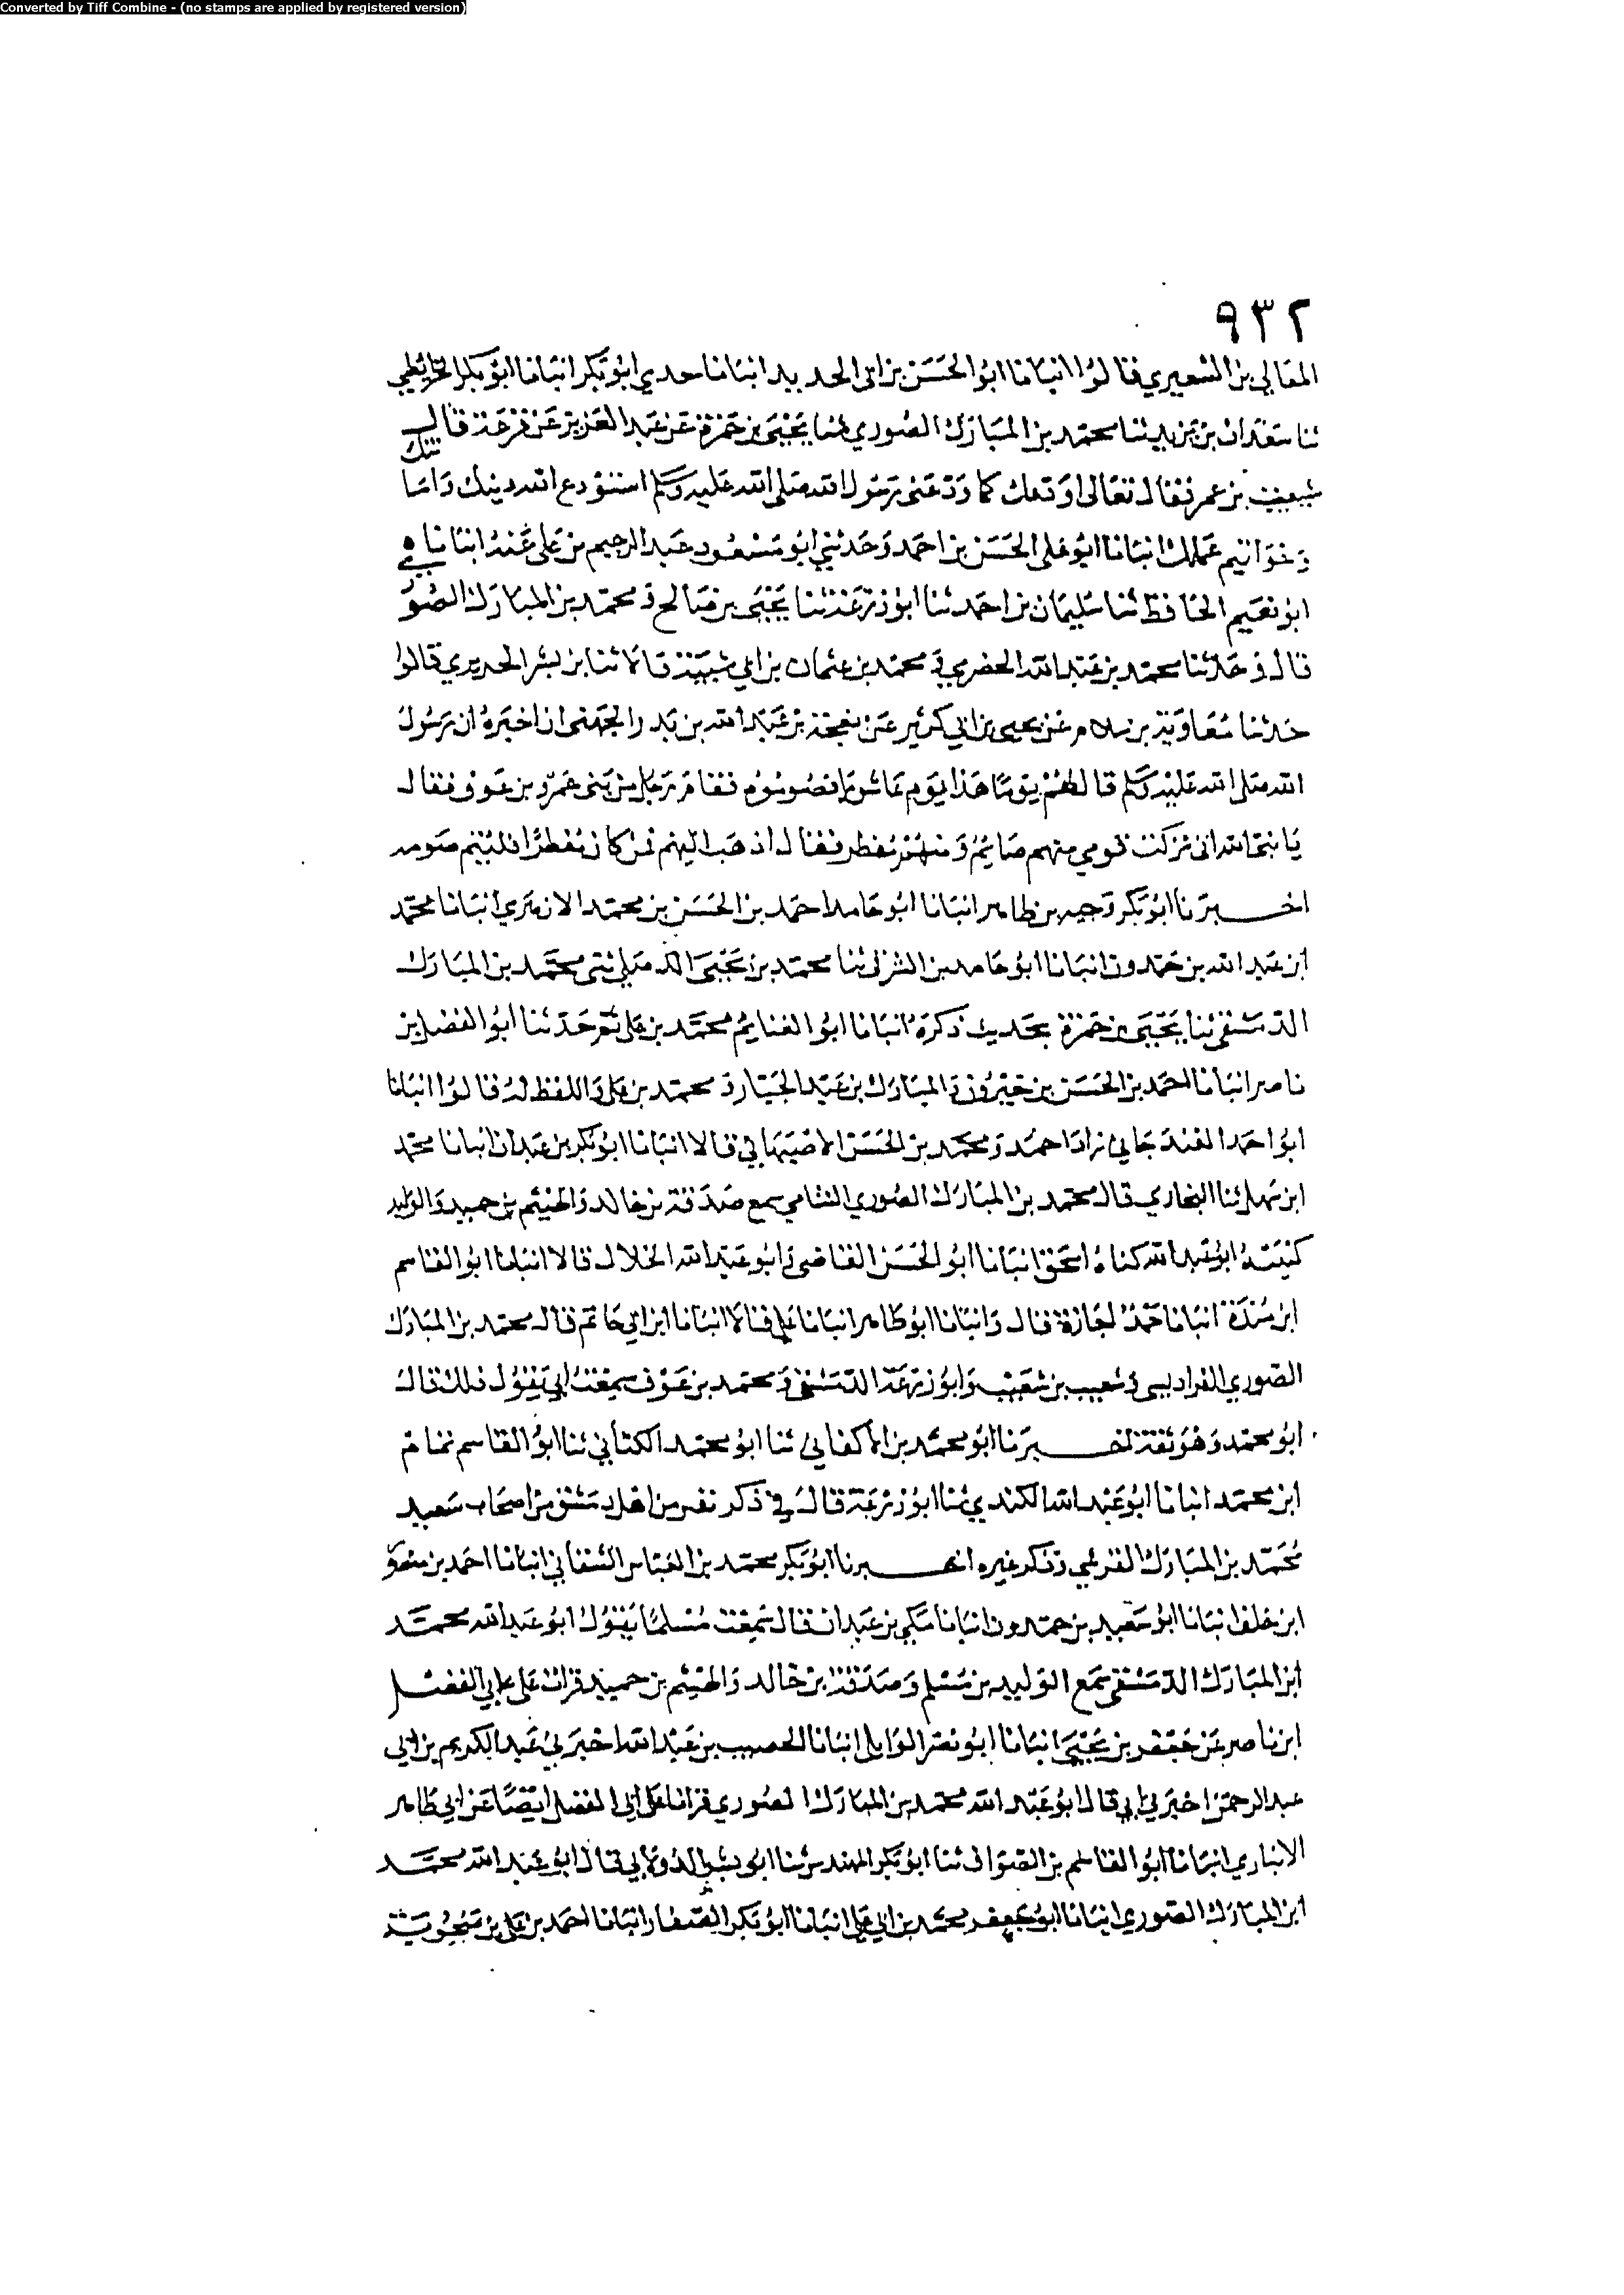 Converted by Tiff Combine - (no stamps are applied by registered version)
٩٣٢
المعالي بن الشعيري قالوا انبانا ابو الحسن بن ابي الحديد انبانا جدي ابو بكر انبانا ابو بكر الخرايطي
ثنا سعدان بن يزيد ثنا محمد بن المبارك الصوري ثنا يحيى بن حمزة عن عبد العزيز عن قزعة قال
بن عمر فقال تعالى اودعك كما ودعني رسول الله صلى الله عليه وسلم استودع الله دينك واما نتك
وخواتيم عملك انبانا ابو على الحسن بن احمد وحدثني ابو مسعود عبد الرحيم بن على عنه انبانا
ابو نعيم الحافظ ثنا سليمان بن احمد ثنا ابو زرعة ثنا يحيى بن صالح و محمد بن المبارك الصو
قال و حدثنا محمد بن عبد الله الحضرمي و محمد بن عثمان بن ابي شيبة قالا ثنا بن بشر الحريري قالوا
حدثنا معاوية بن سلام عن يحيى بن ابي كثير عن بعجة بن عبد الله بن بدر الجهني ان اخبره ان رسول
الله صلى الله عليه وسلم قال لهم يوما هذا يوم عاشورا فصوموه فقام رجل من بني عمرو بن عوف فقال
يا نبي الله اني تركت قومي منهم صايم ومنهم مفطر فقال اذهب اليهم فمن كان مفطرا فليتم صومه
اخبرنا ابو بكر وجيه بن طاهر انبانا ابو حامد احمد بن الحسن بن محمد الازهري انبانا محمد
ابن عبد الله بن حمدون انبانا ابو حامد بن الشرقي ثنا محمد بن يحيى الذهلي ثنى محمد بن المبارك
الدمشقي ثنا يحيى بن حمزة بحديث ذكره انبانا ابو الغنايم محمد بن على ثم حدثنا ابو الفضل بن
ناصر انبانا احمد بن الحسن بن خيرون والمبارك بن عبد الجبار و محمد بن على واللفظ له قالوا انبانا
ابو احمد الغندجاني زاد احمد ومحمد بن الحسن الاصبهاني قالا انبانا ابو بكر بن عبدان انبانا محمد
ابن سهل ثنا البخاري قال محمد بن المبارك الصوري الشامي سمع صدقة بن خالد والهيثم بن حميد والوليد
كنيته ابو عبد الله كناه اسحق انبانا ابو الحسن القاضي و ابو عبد الله الخلال قالا انبانا ابو القاسم
ابن مندة انبانا حمد اجازة قال وانبانا ابو طاهر انبانا على قالا انبانا ابن ابي حاتم قال محمد بن المبارك
الصوري الفراديسي و شعيب بن شعيب وابو زرعة الدمشقي و محمد بن عوف سمعت ابي يقول ذلك قال
ابو محمد وهو ثقة اخبرنا ابو محمد بن الاكفاني ثنا ابو محمد الكتاني ثنا ابو القاسم تمام
ابن محمد انبانا ابو عبد الله الكندي ثنا ابو زرعة قال في ذكر نفر من اهل دمشق من اصحاب سعيد
محمد بن المبارك القرشي وذكر غيره اخبرنا ابو بكر محمد بن العباس الشقاني انبانا احمد بن منصو
ابن خلف انبانا ابو سعيد بن حمدون انبانا مكي بن عبدان قال سمعت مسلما يقول ابو عبد الله محمد
ابن المبارك الدمشقي سمع الوليد بن مسلم وصدقة بن خالد والهيثم بن حميد قرات على ابي الفضل
ابن ناصر عن جعفر بن يحيى انبانا ابو نصر الوايلي انبانا الخصيب بن عبد الله اخبرني عبد الكريم بن ابي
عبد الرحمن اخبرني ابي قال ابو عبد الله محمد بن المبارك الصوري قرانا على ابي الفضل ايضا عن ابي طاهر
الانباري انبانا ابو القاسم بن الصواف ثنا ابو بكر المهندس ثنا ابو بشر الدولابي قال ابو عبد الله محمد
ابن المبارك الصوري انبانا ابو جعفر محمد بن ابي علي انبانا ابو بكر الصفار انبانا احمد بن على بن منجوية